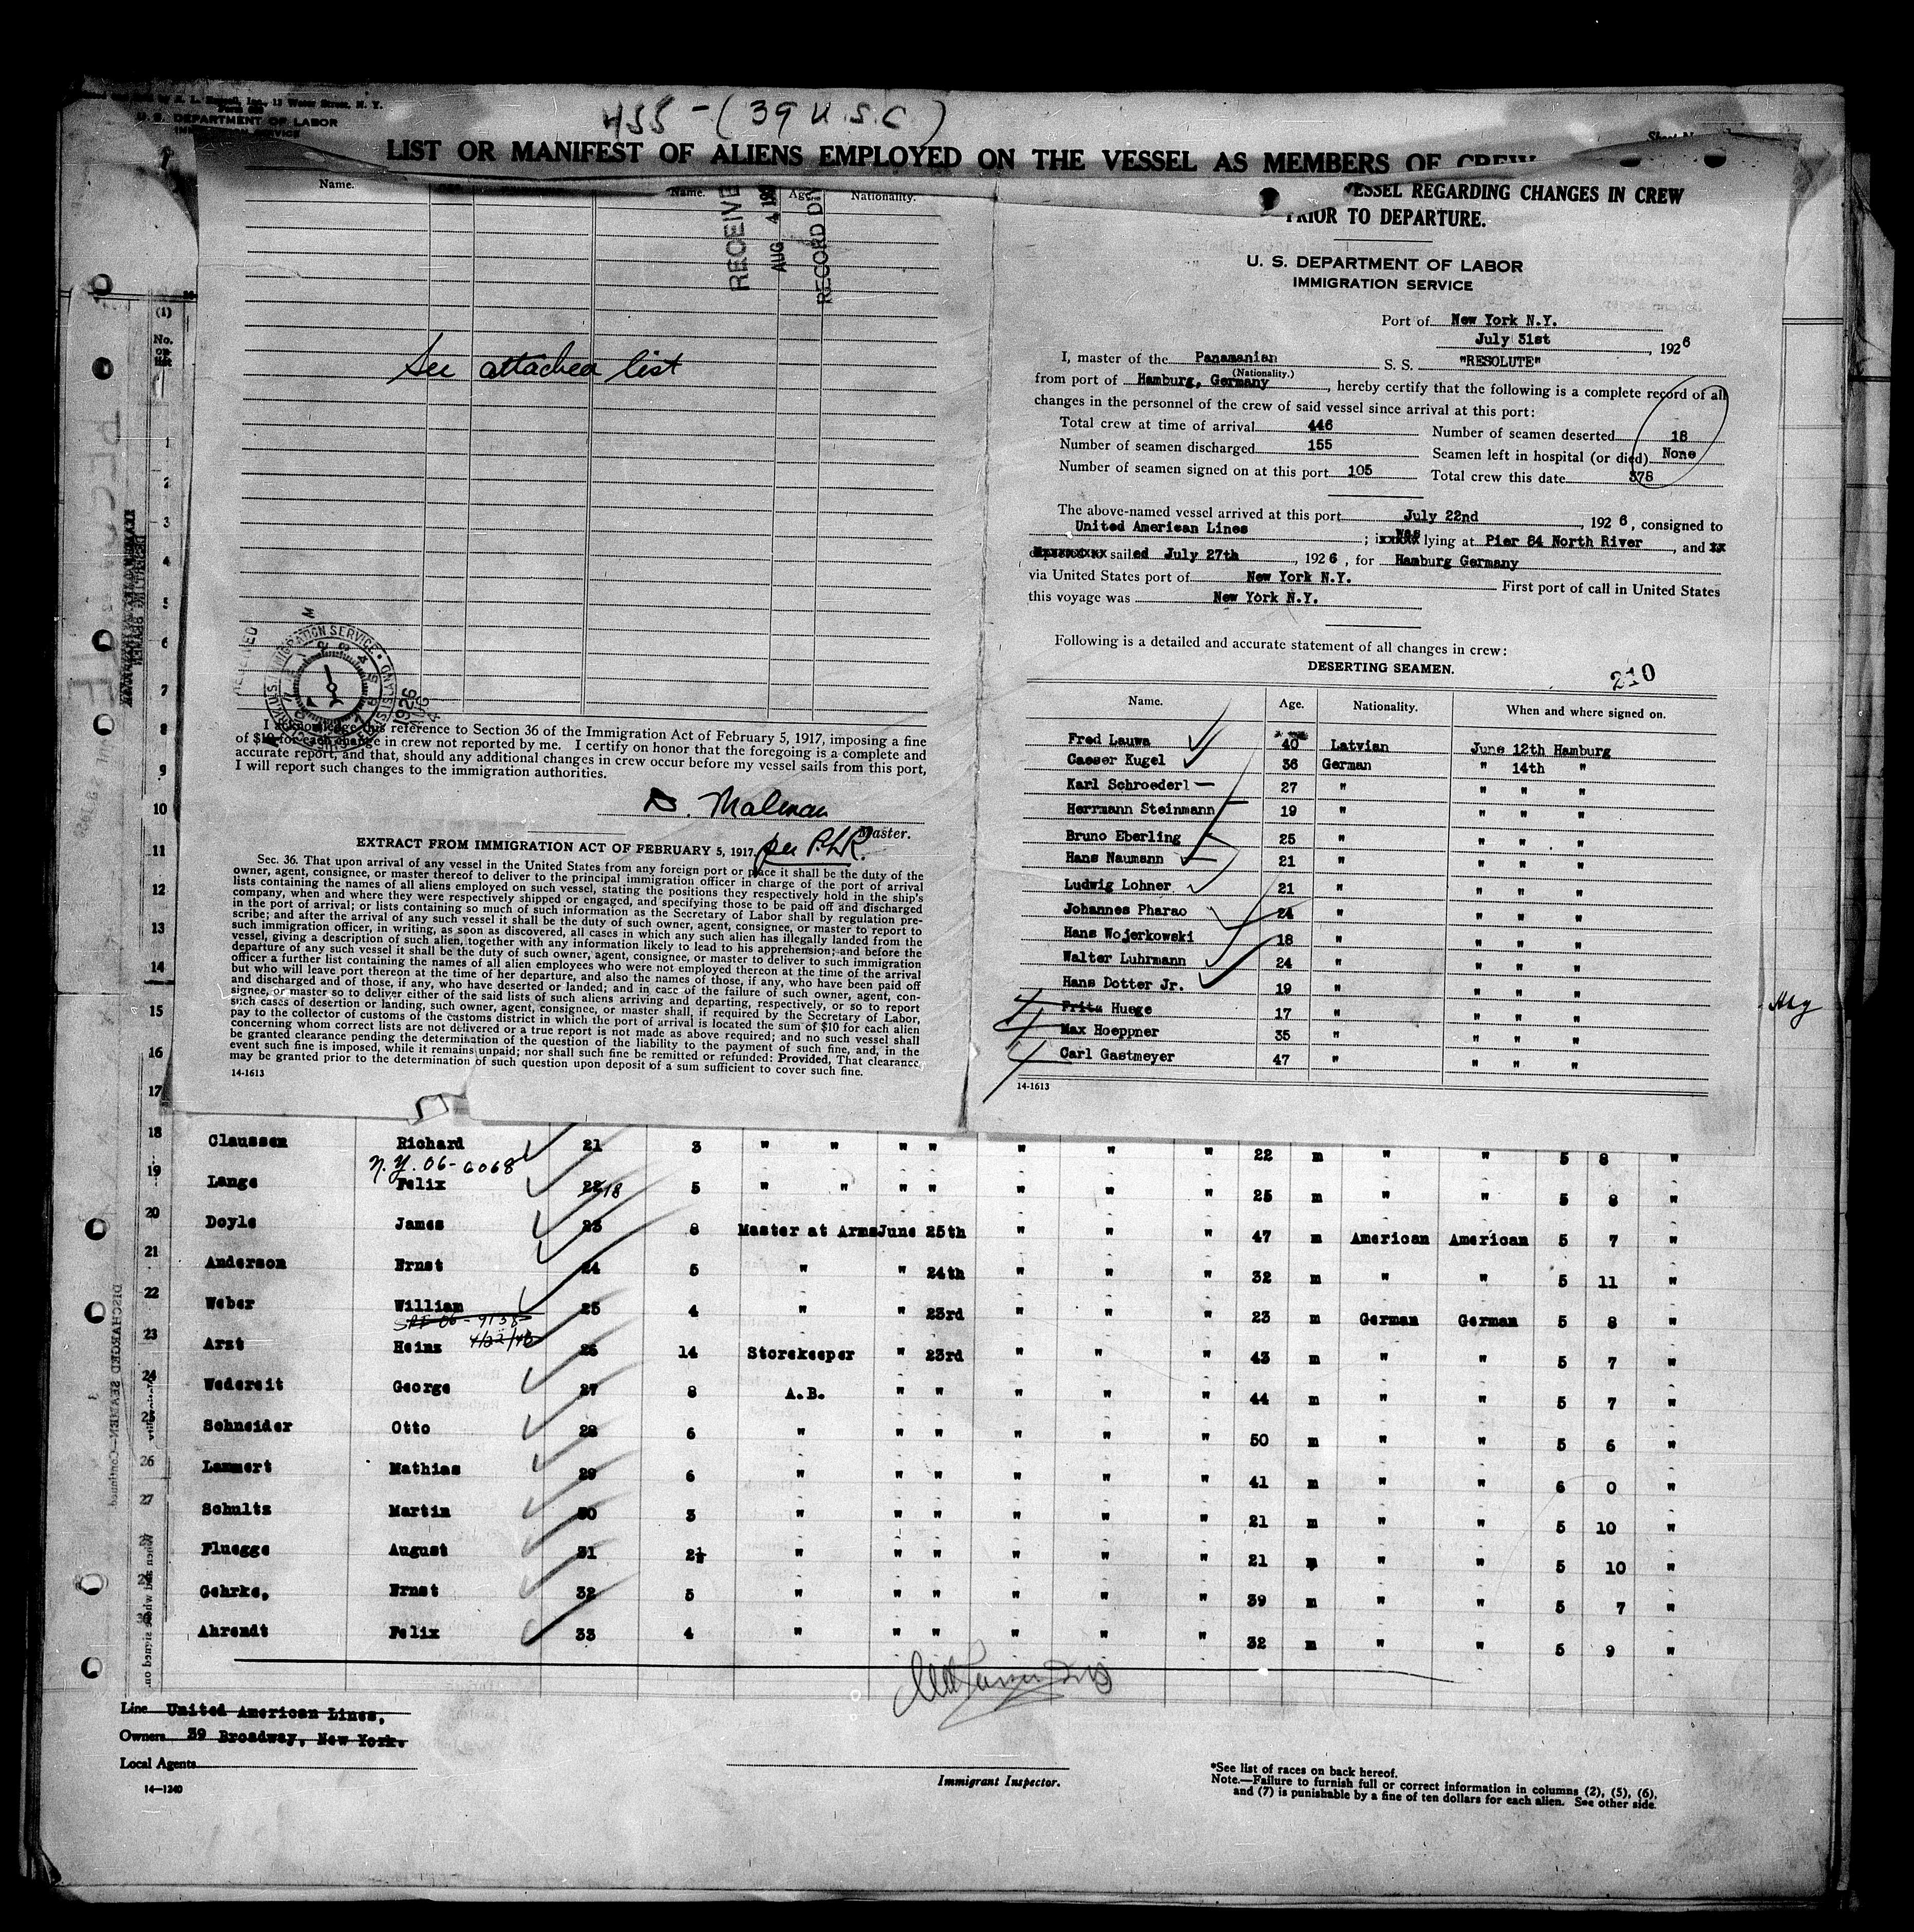 U. S. DEPARTMENT OF LABOR
455 - (39 U.S.C)
LIST OR MANIFEST OF ALIENS EMPLOYED ON THE VESSEL AS MEMBERS OF CREW
Name. Name. Age. Nationality.
RECEIVE
AUG 4
RECORD
See attached list
IMMIGRATION SERVICE
1926
I acknowledge this reference to Section 36 of the Immigration Act of February 5, 1917, imposing a fine
of $10 for each change in crew not reported by me. I certify on honor that the foregoing is a complete and
accurate report, and that, should any additional changes in crew occur before my vessel sails from this port,
I will report such changes to the immigration authorities.
Master.
EXTRACT FROM IMMIGRATION ACT OF FEBRUARY 5, 1917.
Sec. 36. That upon arrival of any vessel in the United States from any foreign port or place it shall be the duty of the
owner, agent, consignee, or master thereof to deliver to the principal immigration officer in charge of the port of arrival
lists containing the names of all aliens employed on such vessel, stating the positions they respectively hold in the ship's
company, when and where they were respectively shipped or engaged, and specifying those to be paid off and discharged
in the port of arrival; or lists containing so much of such information as the Secretary of Labor shall by regulation pre-
scribe; and after the arrival of any such vessel it shall be the duty of such owner, agent, consignee, or master to report to
such immigration officer, in writing, as soon as discovered, all cases in which any such alien has illegally landed from the
vessel, giving a description of such alien, together with any information likely to lead to his apprehension; and before the
departure of any such vessel it shall be the duty of such owner, agent, consignee, or master to deliver to such immigration
officer a further list containing the names of all alien employees who were not employed thereon at the time of the arrival
but who will leave port thereon at the time of her departure, and also the names of those, if any, who have been paid off
and discharged and of those, if any, who have deserted or landed; and in case of the failure of such owner, agent, con-
signee, or master so to deliver either of the said lists of such aliens arriving and departing, respectively, or so to report
such cases of desertion or landing, such owner, agent, consignee, or master shall, if required by the Secretary of Labor,
pay to the collector of customs of the customs district in which the port of arrival is located the sum of $10 for each alien
concerning whom correct lists are not delivered or a true report is not made as above required; and no such vessel shall
be granted clearance pending the determination of the question of the liability to the payment of such fine, and, in the
event such fine is imposed, while it remains unpaid; nor shall such fine be remitted or refunded: Provided, That clearance
may be granted prior to the determination of such question upon deposit of a sum sufficient to cover such fine.
14-1613
VESSEL REGARDING CHANGES IN CREW
PRIOR TO DEPARTURE.
U. S. DEPARTMENT OF LABOR
IMMIGRATION SERVICE
Port of New York N.Y.
July 31st, 1926
I, master of the Panamanian S. S. "RESOLUTE"
(Nationality.)
from port of Hamburg, Germany, hereby certify that the following is a complete record of all
changes in the personnel of the crew of said vessel since arrival at this port:
Total crew at time of arrival 446 Number of seamen deserted 18
Number of seamen discharged 155 Seamen left in hospital (or died) None
Number of seamen signed on at this port 105 Total crew this date 378
The above-named vessel arrived at this port July 22nd, 1926, consigned to
United American Lines; was lying at Pier 84 North River, and
sailed July 27th, 1926, for Hamburg Germany
via United States port of New York N.Y. First port of call in United States
this voyage was New York N.Y.
Following is a detailed and accurate statement of all changes in crew:
DESERTING SEAMEN.
210
Name. Age. Nationality. When and where signed on.
Fred Lauwa 40 Latvian June 12th Hamburg
Caeser Kugel 36 German " 14th "
Karl Schroeder1 27 " " " "
Herrmann Steinmann 19 " " " "
Bruno Eberling 25 " " " "
Hans Naumann 21 " " " "
Ludwig Lohner 21 " " " "
Johannes Pharao 24 " " " "
Hans Wojerkowski 18 " " " "
Walter Luhrmann 24 " " " "
Hans Dotter Jr. 19 " " " "
Fritz Huege 17 " " " "
Max Hoeppner 35 " " " "
Carl Gastmeyer 47 " " " "
14-1613
(1)
No. on list
1
2
3
4
5
6
7
8
9
10
11
12
13
14
15
16
17
18 Claussen Richard 21 3 " " " " " " 22 m " " 5 8 "
N.Y. 06-6068
19 Lange Felix 22 5 " " " " " " 25 m " " 5 8 "
20 Doyle James 23 8 Master at Arms June 25th " " " 47 m American American 5 7 "
21 Anderson Ernst 24 5 " " 24th " " " 32 m " " 5 11 "
22 Weber William 25 4 " " 23rd " " " 23 m German German 5 8 "
23 Arzt Heinz 26 14 Storekeeper " 23rd " " " 43 m " " 5 7 "
24 Wedereit George 27 8 A.B. " " " " " 44 m " " 5 7 "
25 Schneider Otto 28 6 " " " " " " 50 m " " 5 6 "
26 Lammert Mathias 29 6 " " " " " " 41 m " " 6 0 "
27 Schultz Martin 30 3 " " " " " " 21 m " " 5 10 "
Fluegge August 31 2½ " " " " " " 21 m " " 5 10 "
Gehrke, Ernst 32 5 " " " " " " 39 m " " 5 7 "
Ahrendt Felix 33 4 " " " " " " 32 m " " 5 9 "
Line United American Lines,
Owners 39 Broadway, New York.
Local Agents
14-1240
Immigrant Inspector.
*See list of races on back hereof.
Note.—Failure to furnish full or correct information in columns (2), (5), (6),
and (7) is punishable by a fine of ten dollars for each alien. See other side.